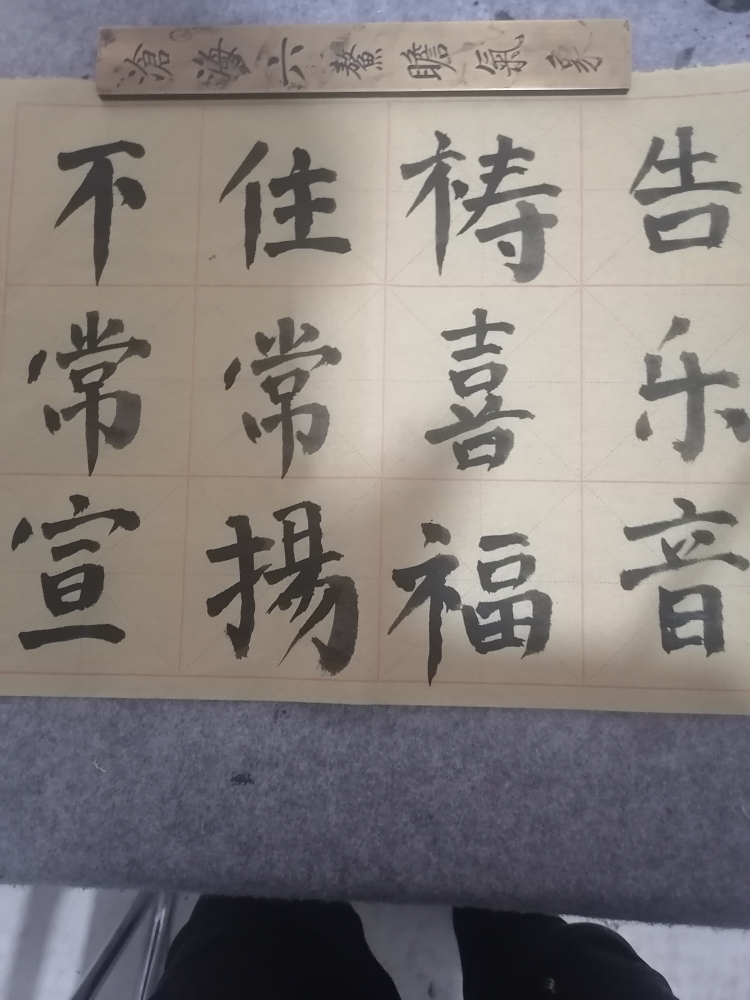 滄海六鰲瞻氣象
不住祷告
常常喜乐
宣揚福音